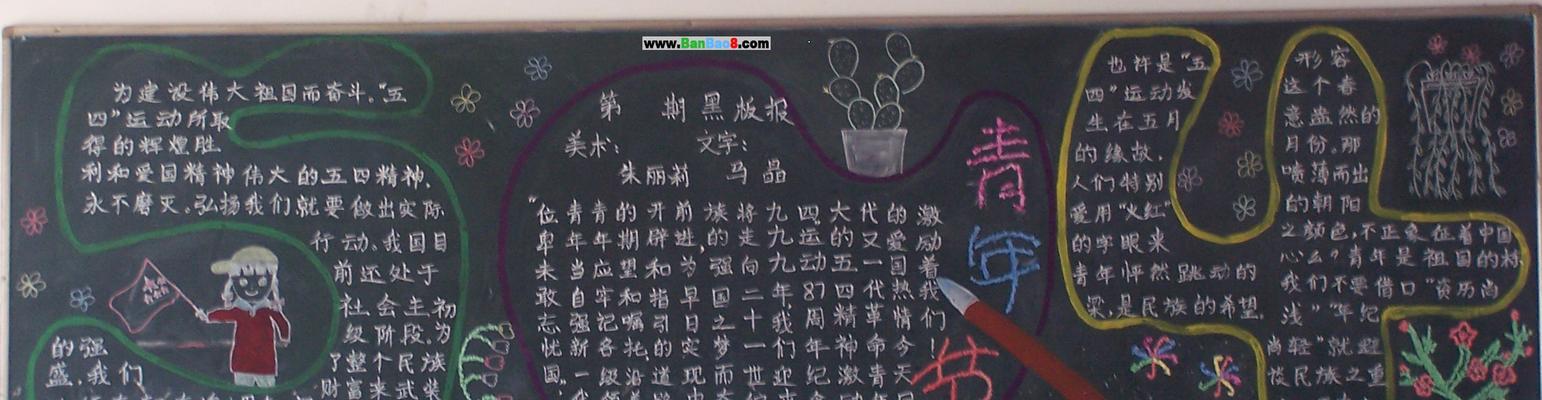 www.BanBao8.com
为建设伟大祖国而奋斗。"五
四"运动所取
得的辉煌胜
利和爱国精神伟大的五四精神,
永不磨灭。弘扬我们就要做出实际
行动。我国目
前还处于
社会主初
级阶段。为
了整个民族
财富来武装
的强
盛,我们
第 期黑版报
美术: 文字:
朱丽莉 马晶
"位青青的开前族将九四大代的激
卑年年期辟进,的走九运的又爱励
未当应望和为强向九动五一国着
敢自牢和指早国二年,87四代热我
忘强记嘱引日之十我周精革情们
忧新各托,的实梦一们年神命今!
国。一级沿道现而世迎纪激青天
青年节
也许是"五
四"运动发
生在五月
的缘故,
人们特别
爱用"火红"
的字眼来
青年怦然跳动的
梁,是民族的希望,
形容
这个春
意盎然的
月份。那
喷薄而出
的朝阳
之颜色,不正象征着中国
心么?青年是祖国的栋
我们不要借口"资历尚
浅""年纪
尚轻"就逃
民族之重